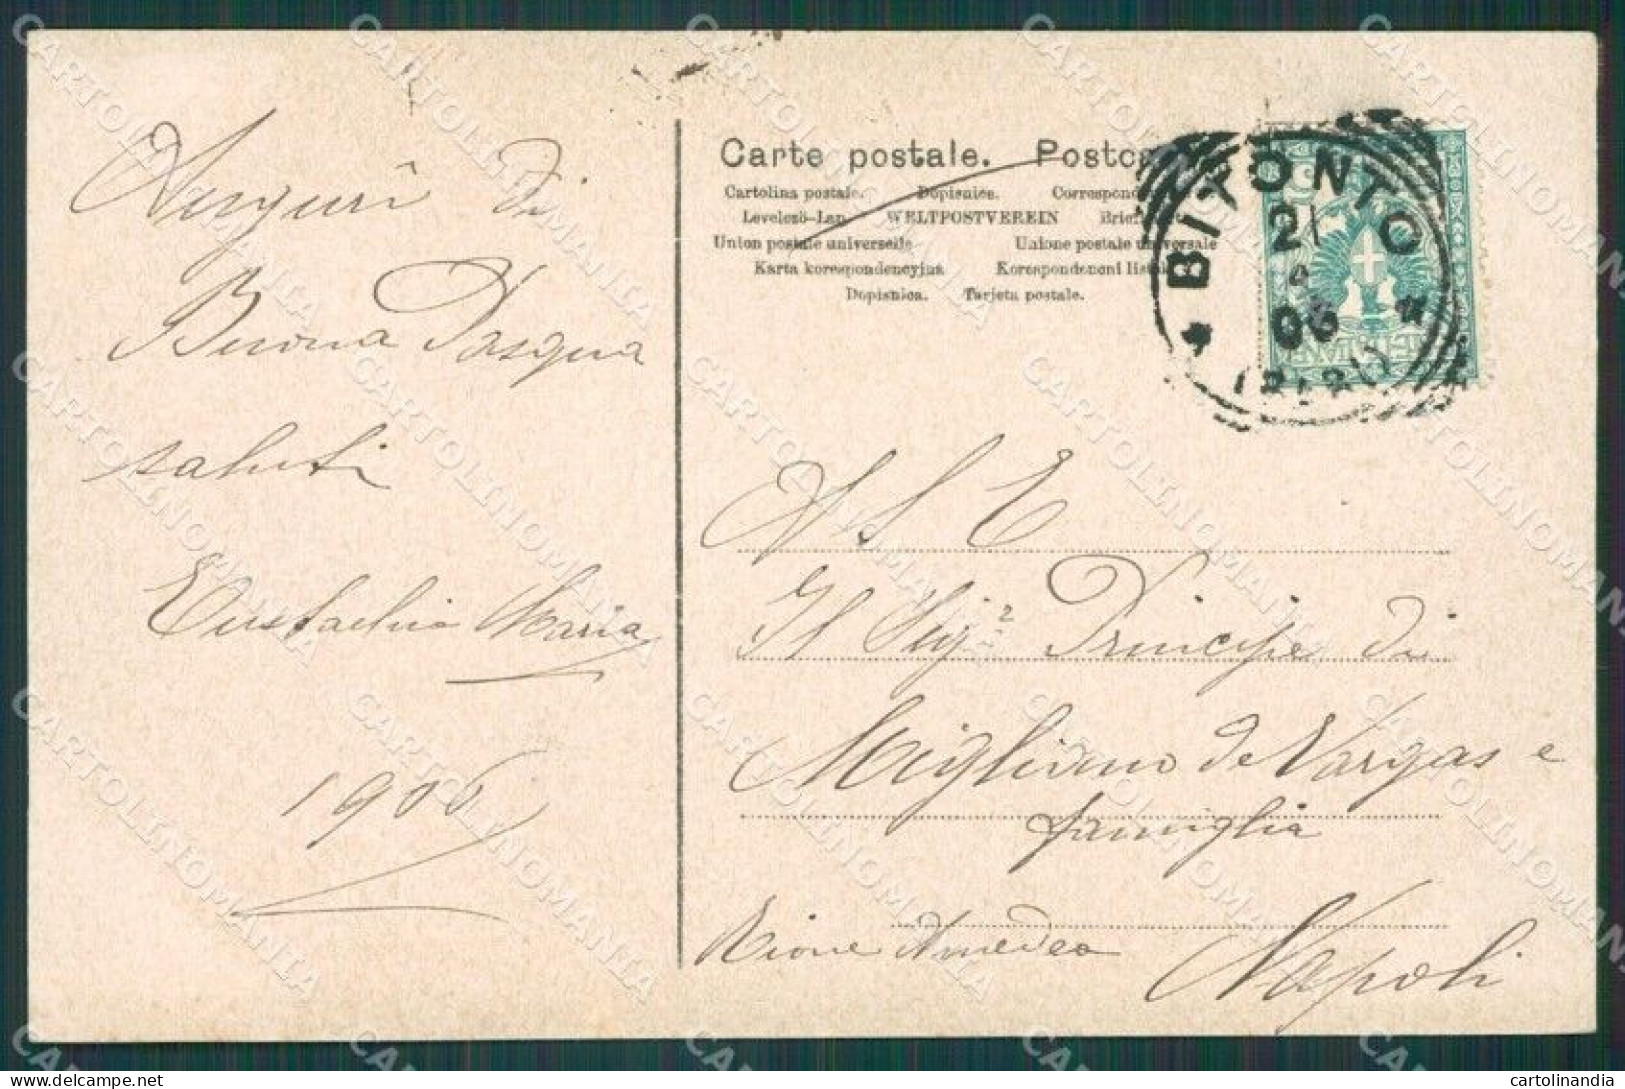 Augurî di
Buona Pasqua
saluti
Eustachio Maria
1906
Carte postale. Postca
Cartolina postale. Dopisnice. Correspond
Levelezö-Lap. WELTPOSTVEREIN Brief
Union postale universelle Unione postale universale
Karta korespondencyjna Korespondencni listek
Dopisnica. Tarjeta postale.
BITONTO
21
4
06
A S E
Il Sigr Principe di
Migliano de Vargas e
famiglia
Rione Amedeo
Napoli
CARTOLINOMANIA
cartolinomania.com
cartolinandia